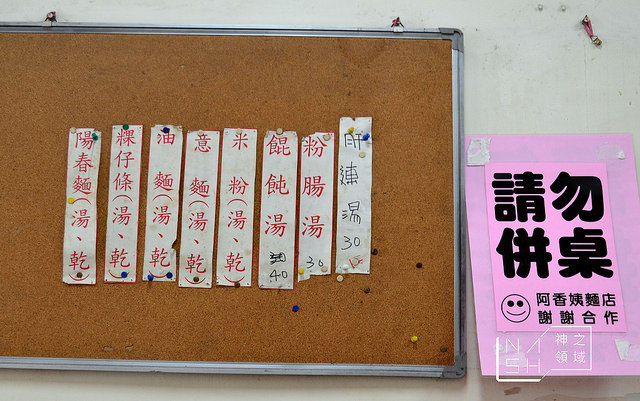 肝連湯 30
粉腸湯 30
餛飩湯 40
米粉(湯、乾)
意麵(湯、乾)
油麵(湯、乾)
粿仔條(湯、乾)
陽春麵(湯、乾)
請勿
併桌
阿香姨麵店
謝謝合作
神之
領域